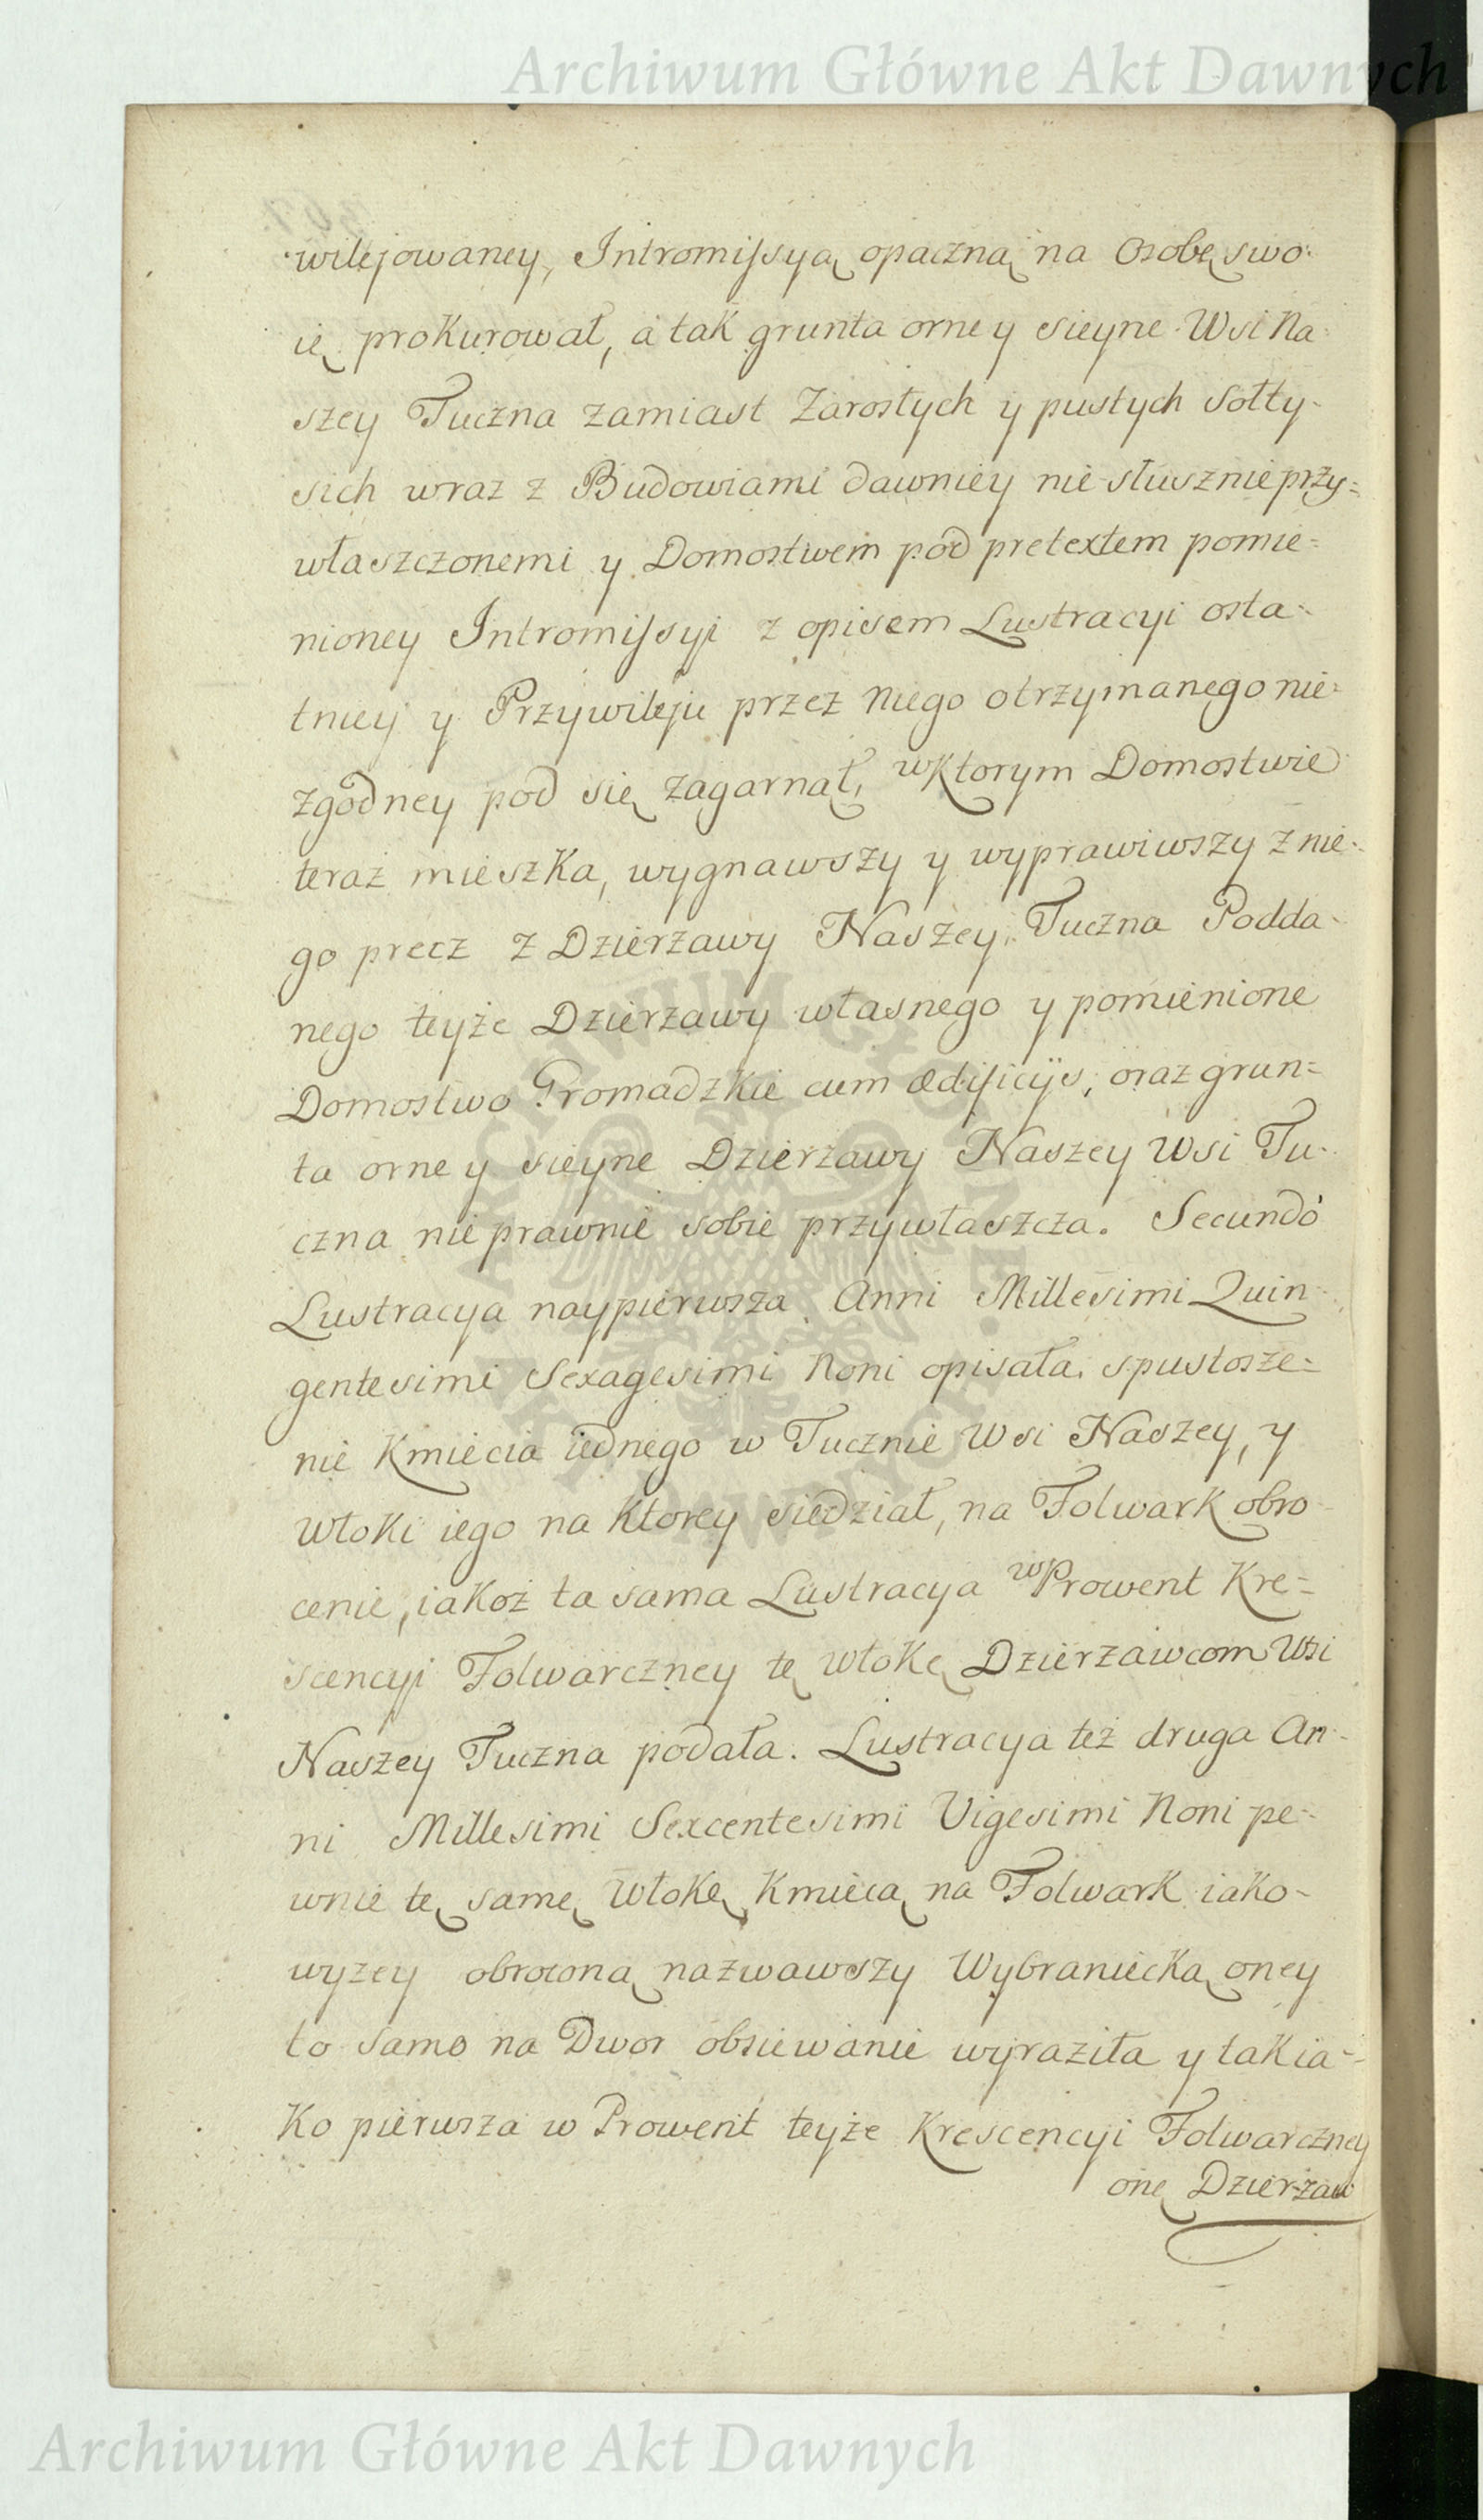 Archiwum Główne Akt Dawnych
wilejowaney, Intromissyą opaczną na Osobę swo-
ię prokurował, a tak grunta orne y sieyne Wsi Na-
szey Tuczna zamiast Zarosłych y pustych Sołty-
sich wraz z Budowiami dawniey nie słusznie przy=
właszczonemi y Domostwem pod pretextem pomie=
nioney Intromissyi z opisem Lustracyi osta=
tniey y Przywileju przez Niego otrzymanego nie=
zgodney pod się zagarnął, w Ktorym Domostwie
teraz mieszka, wygnawszy y wyprawiwszy z nie-
go precz z Dzierzawy Naszey Tuczna Podda-
nego teyże Dzierzawy własnego y pomienione
Domostwo Gromadzkie cum ædificijs, oraz grun=
ta orne y sieyne Dzierzawy Naszey Wsi Tu-
czna nieprawnie sobie przywłaszcza. Secundó
Lustracya naypierwsza Anni Millesimi Quin-
gentesimi Sexagesimi Noni opisała spustosze=
nie Kmiecia iednego w Tucznie Wsi Naszey, y
Włoki iego na Ktorey siedział, na Folwark obro-
cenie, iakoż ta sama Lustracya w Prowent Kre=
scencyi Folwarczney tę Włokę Dzierzawcom Wsi
Naszey Tuczna podała. Lustracya też druga An-
ni Millesimi Sexcentesimi Vigesimi Noni pe-
wnie tę samę Włokę Kmiecą na Folwark iako-
wyzey obroconą nazwawszy Wybraniecką oney
to samo na Dwor obsiewanie wyraziła y tak ia-
ko pierwsza w Prowent teyże Krescencyi Folwarczney
onę Dzierzaw
ARCHIWUM GŁÓWNE AKT DAWNYCH
Archiwum Główne Akt Dawnych